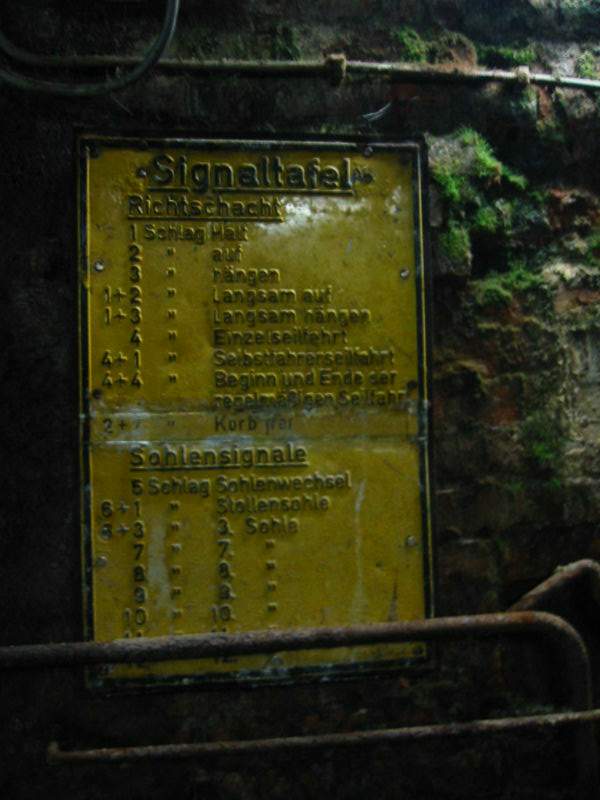 Signaltafel
Richtschacht
1 Schlag Halt
2 " auf
3 " hängen
1+2 " Langsam auf
1+3 " Langsam hängen
4 " Einzelseilfahrt
4+1 " Selbstfahrerseilfahrt
4+4 " Beginn und Ende der
regelmäßigen Seilfahrt
" Korb frei
Sohlensignale
5 Schlag Sohlenwechsel
6+1 " Stollensohle
+3 " 3. Sohle
7 " 7. "
8 " 8. "
9 " 9. "
10 " 10. "
11 " 11.
12 12.